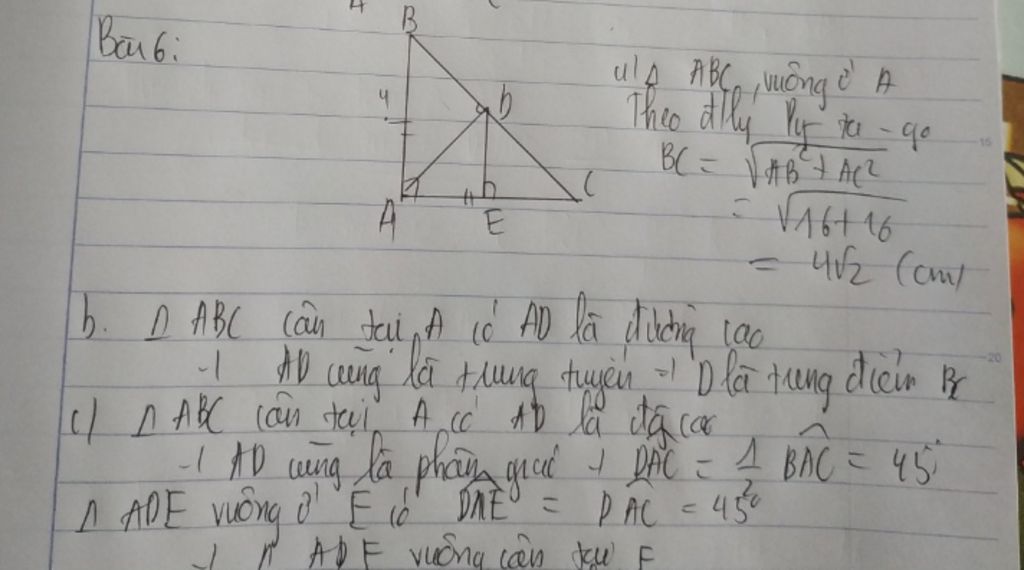 Bài 6:
B
4
D
A
E
C
a) Δ ABC, vuông ở A
Theo đ/lý Py ta - go
BC = √AB² + AC²
= √16+16
= 4√2 (cm)
b. Δ ABC cân tại A có AD là đường cao
→ AD cũng là trung tuyến → D là trung điểm BC
c) Δ ABC cân tại A có AD là đg cao
→ AD cũng là phân giác → DAC = 1/2 BAC = 45°
Δ ADE vuông ở E có DAE = DAC = 45°
→ Δ ADE vuông cân tại E
15
20